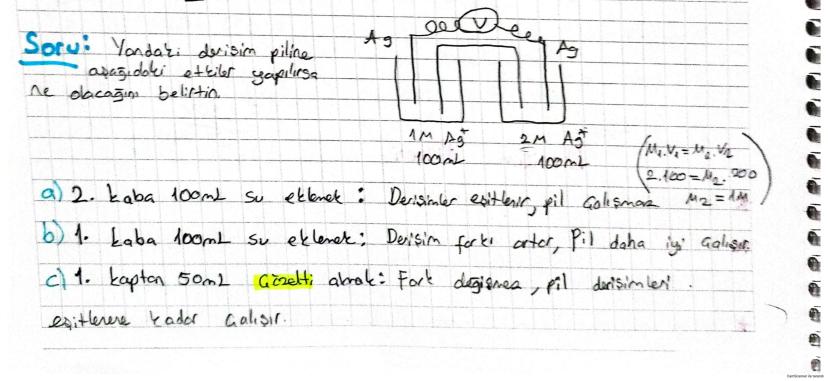 Soru: Yandaki derişim piline
aşağıdaki etkiler yapılırsa
ne olacağını belirtin.
Ag
V
Ag
1M Ag⁺
100mL
2M Ag⁺
100mL
(M₁.V₁ = M₂.V₂
2.100 = M₂.200
M₂ = 1M)
a) 2. kaba 100mL su eklemek : Derişimler eşitlenir, pil çalışmaz
b) 1. kaba 100mL su eklemek: Derişim farkı artar, Pil daha iyi çalışır.
c) 1. kaptan 50mL Çözelti almak: Fark değişmez, pil derişimleri
eşitlenene kadar çalışır.